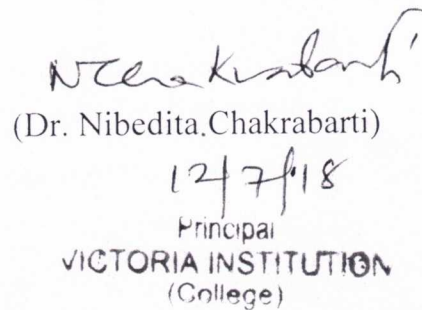 (Dr. Nibedita Chakrabarti)
12/7/18
Principal
VICTORIA INSTITUTION
(College)